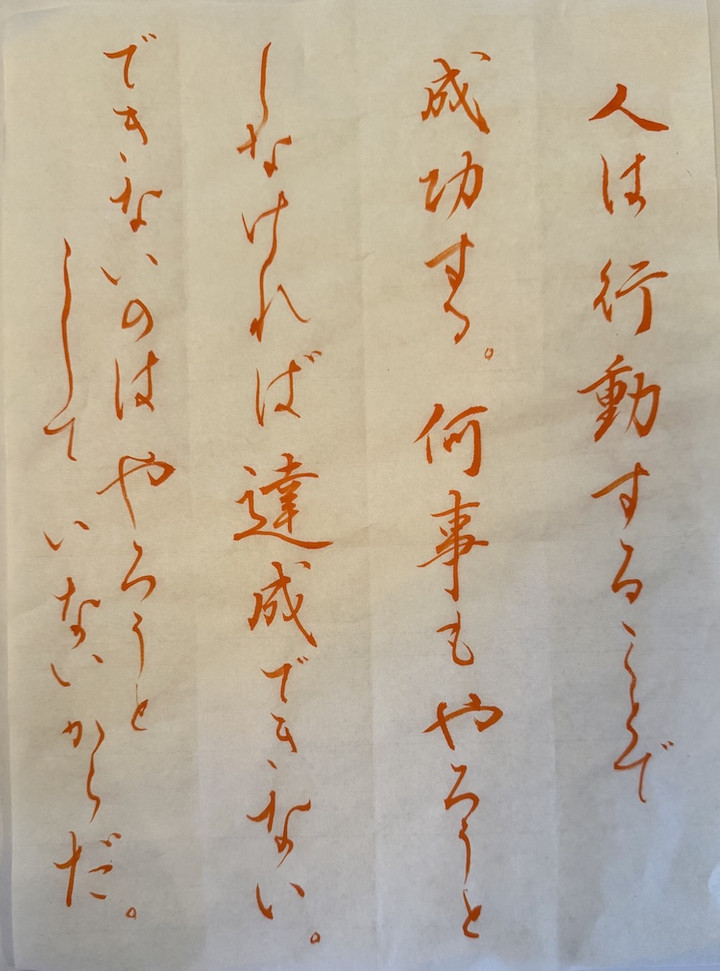 人は行動することで
成功する。何事もやろうと
しなければ達成できない。
できないのはやろうと
していないからだ。